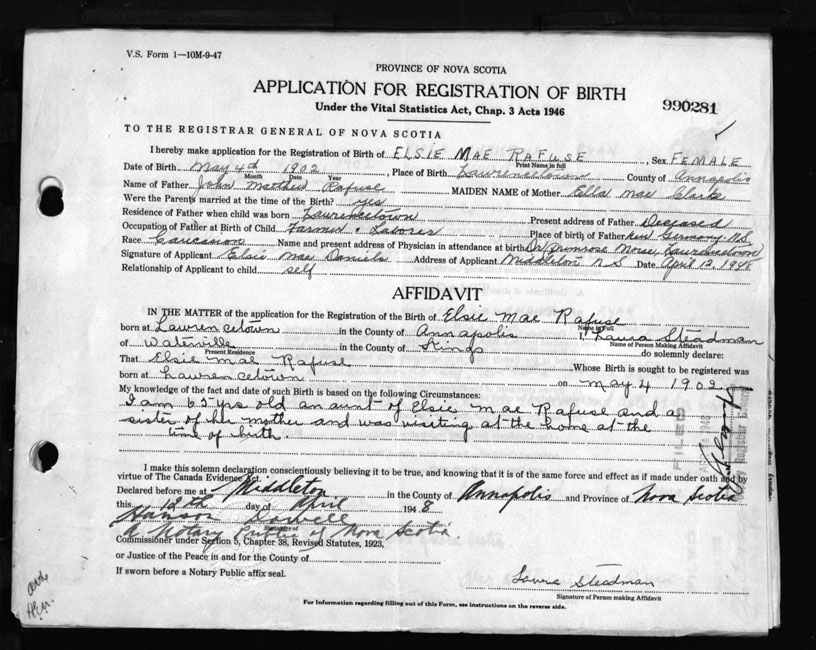 V.S. Form 1—10M-9-47
PROVINCE OF NOVA SCOTIA
APPLICATION FOR REGISTRATION OF BIRTH
990281
Under the Vital Statistics Act, Chap. 3 Acts 1946
TO THE REGISTRAR GENERAL OF NOVA SCOTIA
I hereby make application for the Registration of Birth of ELSIE MAE RAFUSE, Sex FEMALE
Print Name in full
Date of Birth May 4th 1902, Place of Birth Lawrencetown County of Annapolis
Month Date Year
Name of Father John Mathew Rafuse MAIDEN NAME of Mother Ella Mae Clark
Were the Parents married at the time of the Birth? yes
Residence of Father when child was born Lawrencetown Present address of Father Deceased
Occupation of Father at Birth of Child Farmer & Laborer Place of birth of Father New Germany N.S.
Race Caucasion Name and present address of Physician in attendance at birth Dr Primrose Morse, Lawrencetown
Signature of Applicant Elsie Mae Daniels Address of Applicant Middleton N.S Date April 12, 1948
Relationship of Applicant to child self
AFFIDAVIT
IN THE MATTER of the application for the Registration of the Birth of Elsie Mae Rafuse
Name in Full
born at Lawrencetown in the County of Annapolis I, Laura Steadman
Name of Person Making Affidavit
of Waterville in the County of Kings do solemnly declare:
Present Residence
That Elsie Mae Rafuse Whose Birth is sought to be registered was
born at Lawrencetown on May 4 1902
My knowledge of the fact and date of such Birth is based on the following Circumstances:
I am 65 yrs old an aunt of Elsie Mae Rafuse and a
sister of her mother and was visiting at the home at the
time of birth.
FILED
I make this solemn declaration conscientiously believing it to be true, and knowing that it is of the same force and effect as if made under oath and by
virtue of The Canada Evidence Act.
Declared before me at Middleton in the County of Annapolis and Province of Nova Scotia
this 12th day of April 1948
A Notary Public of Nova Scotia.
Signature of
Commissioner under Section 5, Chapter 38, Revised Statutes, 1923,
or Justice of the Peace in and for the County of
If sworn before a Notary Public affix seal.
Laura Steadman
Signature of Person making Affidavit
For Information regarding filling out of this Form, see instructions on the reverse side.